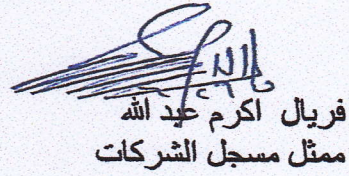 فريال اكرم عبد الله
ممثل مسجل الشركات